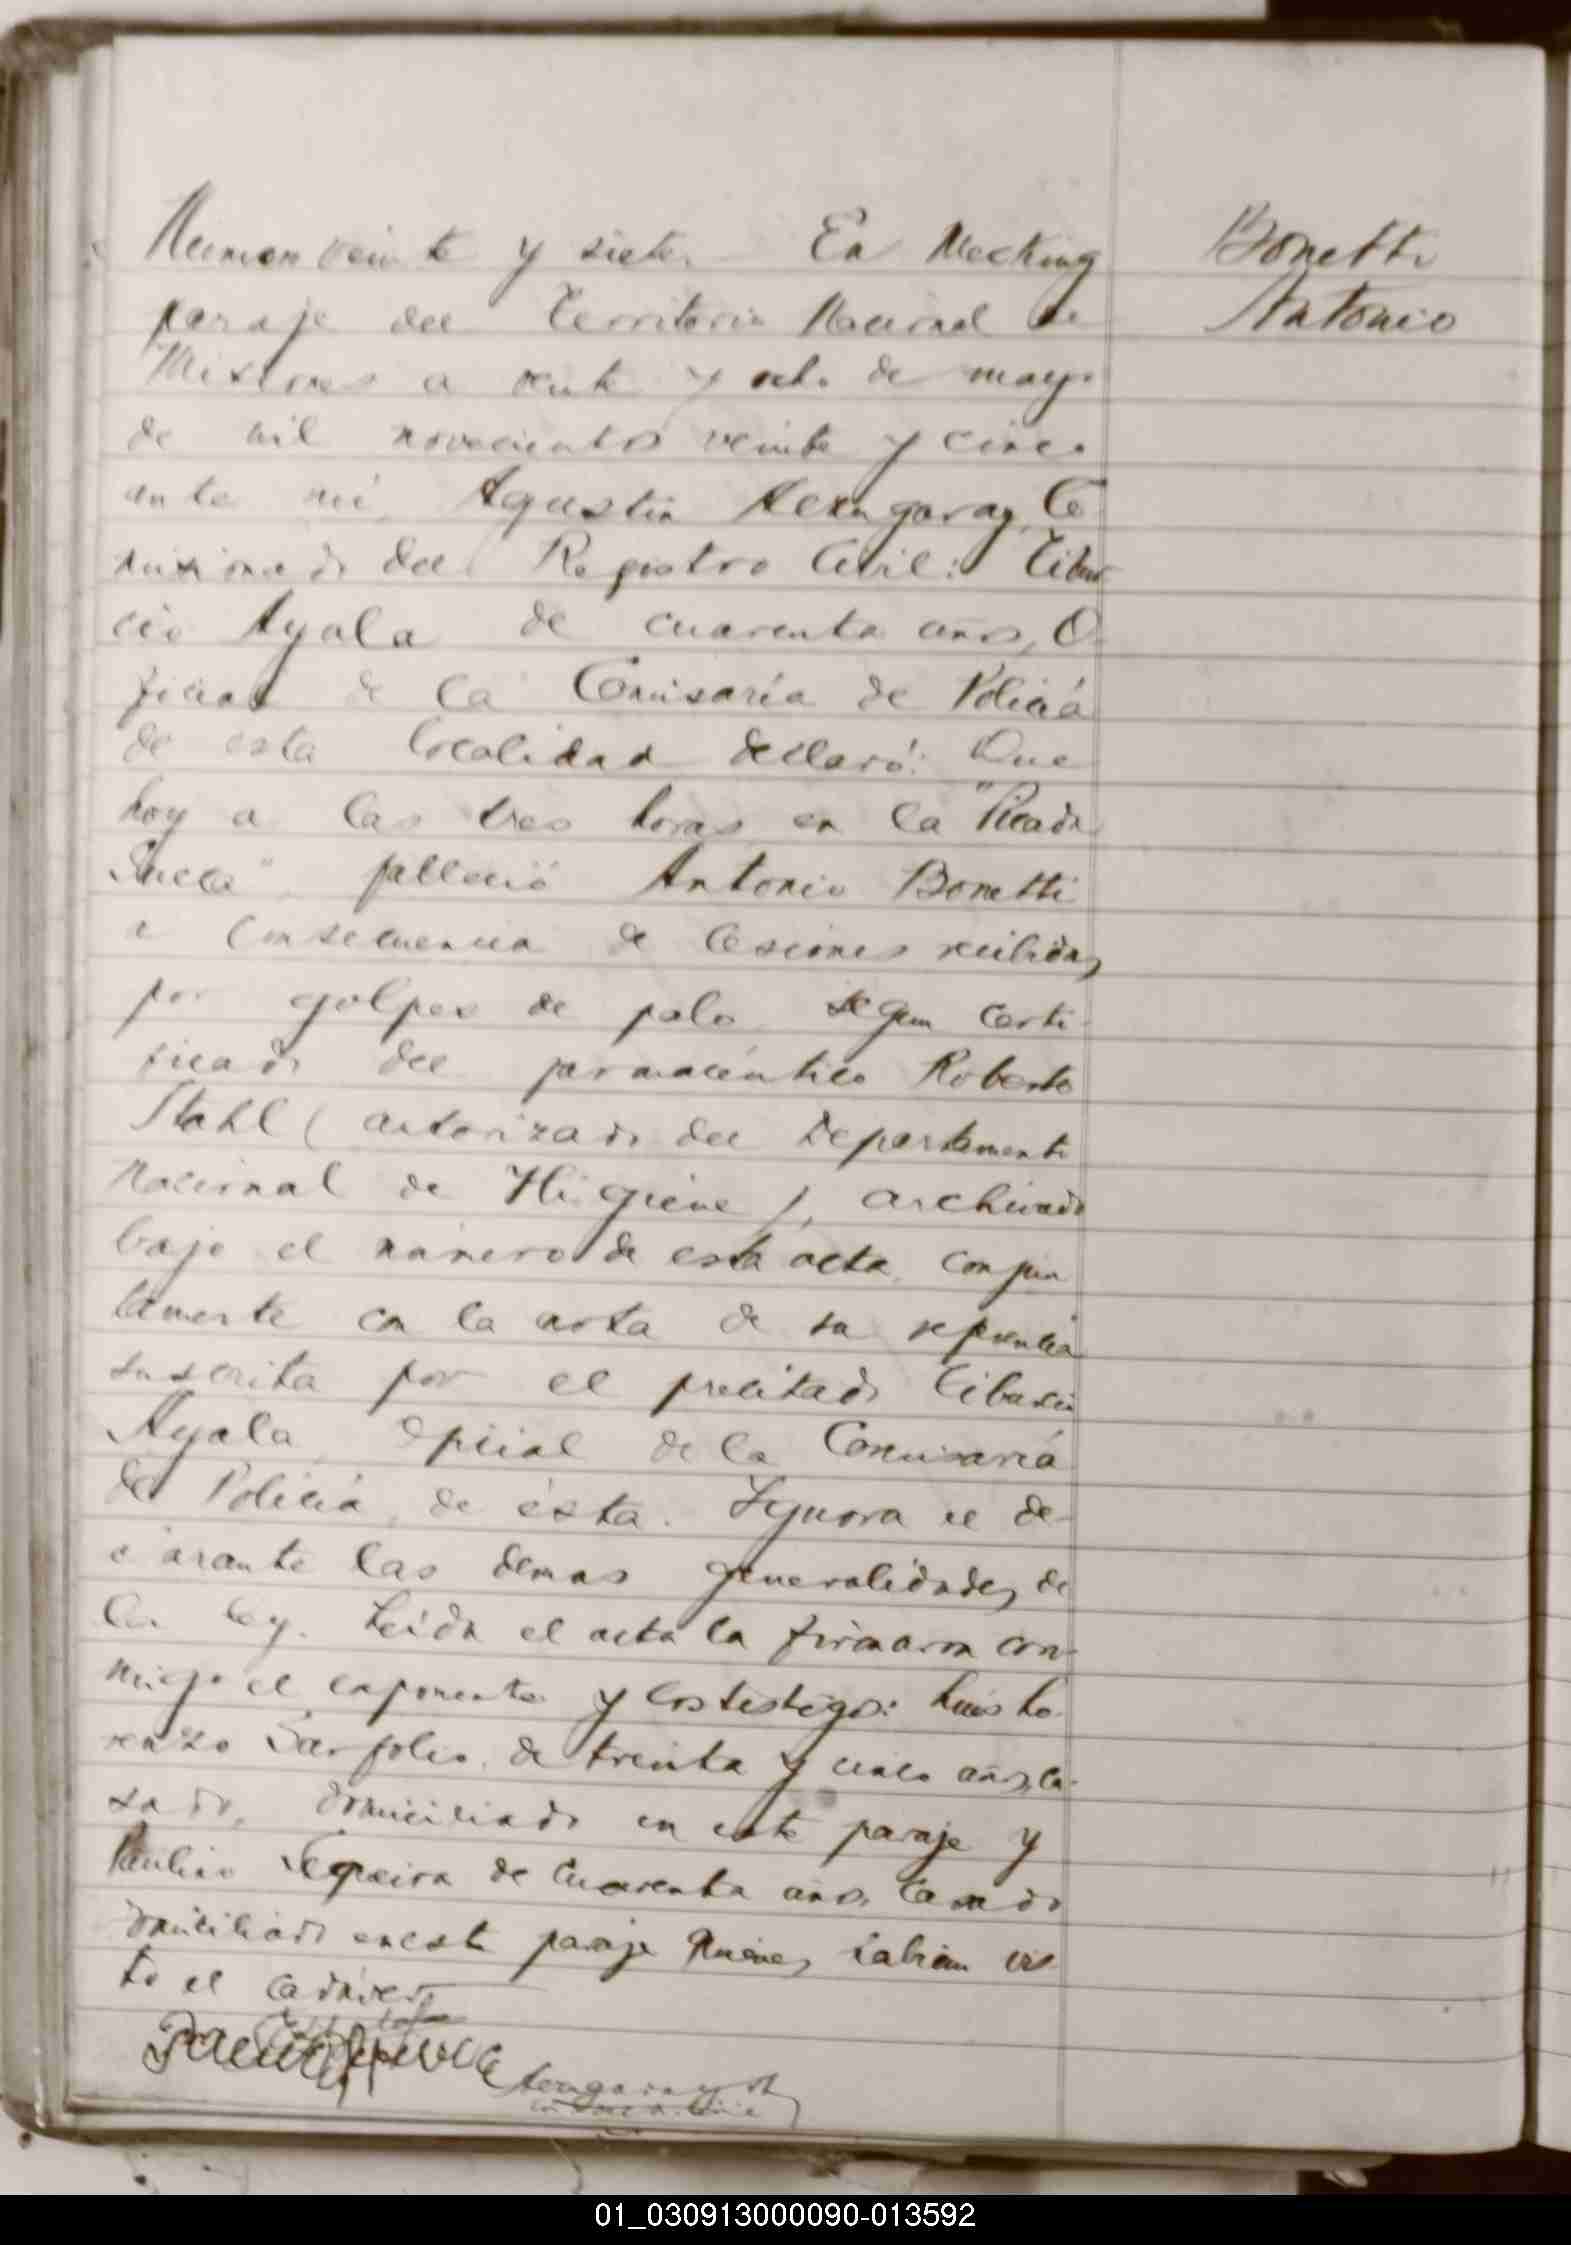 Numero veinte y siete. En Mecking
paraje del Territorio Nacional de
Misiones a veinte y ocho de mayo
de mil novecientos veinte y cinco
ante mí, Agustin Aemgaray, Co
misionado del Registro Civil: Tibur
cio Ayala de cuarenta años, O-
ficial de la Comisaría de Policiá
de esta localidad declaró: Que
hoy a las tres horas en la "Picada
Sueca", falleció Antonio Bonetti
a consecuencia de lesiones recibidas
por golpes de palo segun certi-
ficado del farmacéutico Roberto
Stahl (autorizado del Departamento
Nacional de Higiene), archivado
bajo el número de esta acta, conjun
tamente con la nota de su referencia
suscrita por el precitado Tiburcio
Ayala, oficial de la Comisaría
de Policiá, de ésta. Ignora el de-
clarante las demas generalidades de
la ley. Leida el acta la firmaron con-
migo el exponente y los testigos: Luis Lo-
renzo de treinta y cinco años, ca-
sado, domiciliado en este paraje y
Paulino Sequeira de cuarenta años, casado
domiciliado en este paraje quienes habian vis
to el cadáver
Bonetti
Antonio
01_030913000090-013592